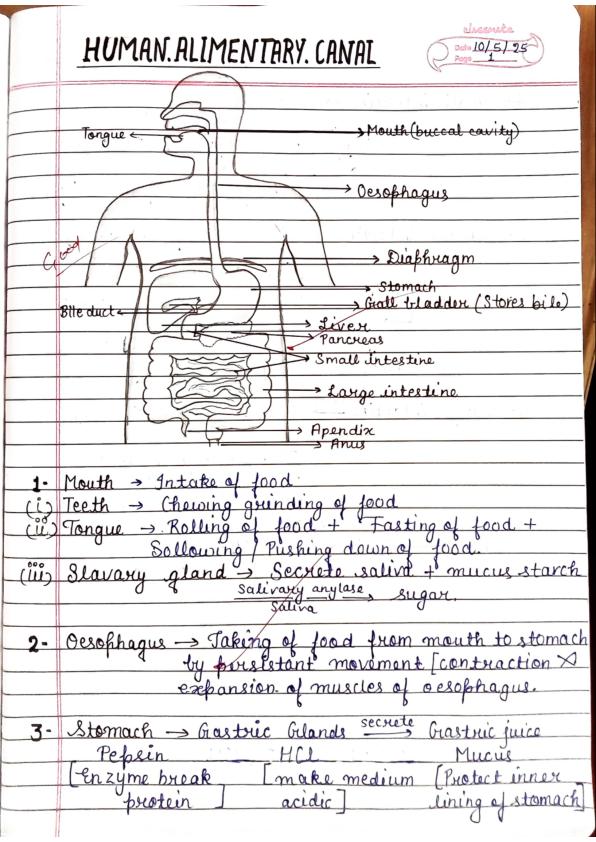 HUMAN.ALIMENTARY.CANAL
classmate
Date 10/5/25
Page 1
Tongue
Mouth (buccal cavity)
Oesophagus
Good
Diaphragm
Stomach
Gall bladder (Stores bile)
Bile duct
Liver
Pancreas
Small intestine
Large intestine
Apendix
Anus
1- Mouth → Intake of food
(i) Teeth → Chewing grinding of food
(ii) Tongue → Rolling of food + Fasting of food +
Sollowing / Pushing down of food.
(iii) Slavary gland → Secrete saliva + mucus starch
Salivary anylase
Saliva
→ sugar.
2- Oesophagus → Taking of food from mouth to stomach
by persistant movement [contraction
expansion of muscles of oesophagus.
3- Stomach → Gastric Glands secrete → Gastric juice
Pepsin HCl Mucus
[Enzyme break [make medium [Protect inner
protein ] acidic ] lining of stomach]